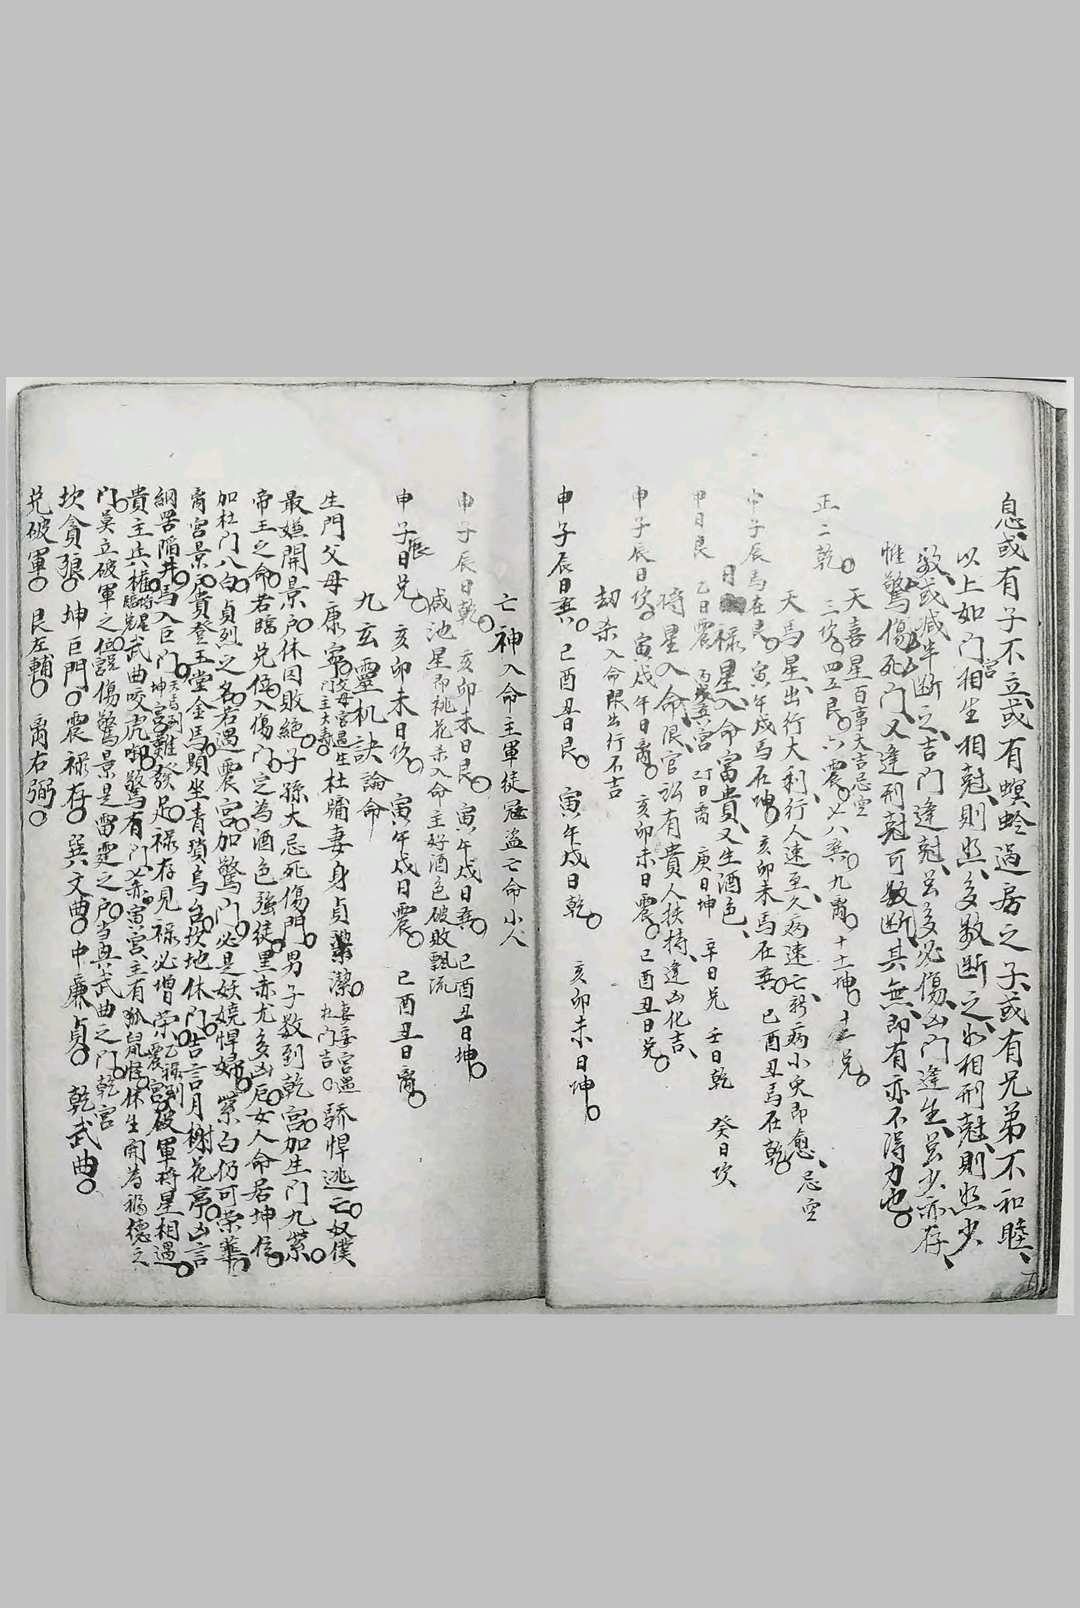 息或有子不立或有螟蛉過房之子或有兄弟不和睦
以上如門宮相生相尅則照多数断之如相刑尅則照少
数或減半断之吉門逢尅虽多必傷凶門逢生虽少亦存
惟驚傷死門又逢刑尅可数断其無即有亦不得力也
天喜星百事大吉忌空
正二乾 三坎 四五艮 六震 七八巽 九离 十十一坤 十二兑
天馬星出行大利行人速至久病速亡新病小灾即愈忌空
申子辰馬在艮 寅午戌馬在坤 亥卯未馬在巽 巳酉丑馬在乾
日禄星入命富貴又生酒色
甲日艮 乙日震 丙戊巽宮 丁日离 庚日坤 辛日兑 壬日乾 癸日坎
將星入命限官訟有貴人扶持逢凶化吉
申子辰日坎 寅戌午日离 亥卯未日震 巳酉丑日兑
劫杀入命限出行不吉
申子辰日巽 巳酉丑日艮 寅午戌日乾 亥卯未日坤
亡神入命主軍徒冦盗亡命小人
申子辰日乾 亥卯未日艮 寅午戌日巽 巳酉丑日坤
咸池星即桃花杀入命主好酒色破敗飄流
申子辰日兑 亥卯未日坎 寅午戌日震 巳酉丑日离
九玄靈机訣論命
生門父母康寧父母宮遇生門主大寿杜牖妻身貞潔妻妾宮遇杜門吉驕悍逃亡奴僕
最嫌開景戶休囚敗絕子孫大忌死傷門男子数到乾宮加生門九紫
帝王之命若臨兑位入傷門定為酒色強徒黑赤尤多凶厄女人命居坤位
加杜門八白貞烈之名若遇震宮加驚門必是妖嬈悍婦紫白仍可荣華
离宮景戶貴登玉堂金馬顕坐青瑣烏台坎地休門吉言月榭花亭凶言
網罟陥井馬入巨門坤宮難發足禄存見禄必增荣震宮破軍將星相遇
貴主兵權武曲咬虎啣驚有門必亦寅宮主有狐鼠怪休生開為福德之
門莫立破軍之位誤傷驚景是雷霆之户当與武曲之門乾宮
坎貪狼 坤巨門 震禄存 巽文曲 中廉貞 乾武曲
兑破軍 艮左輔 离右弼